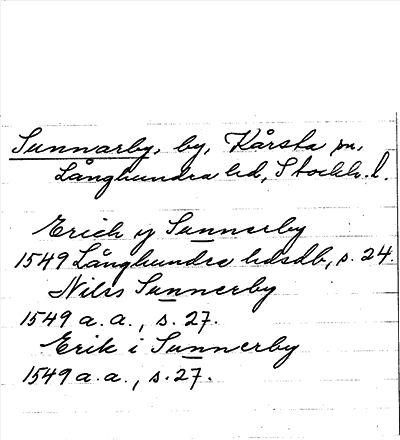 Sunnarby, by, Kårsta sn,
Långhundra hd, Stockh. l.
Erich y Sunnerby
1549 Långhundre hdsdb, s. 24.
Nilss Sunnerby
1549 a. a., s. 27.
Erik i Sunnerby
1549 a. a., s. 27.